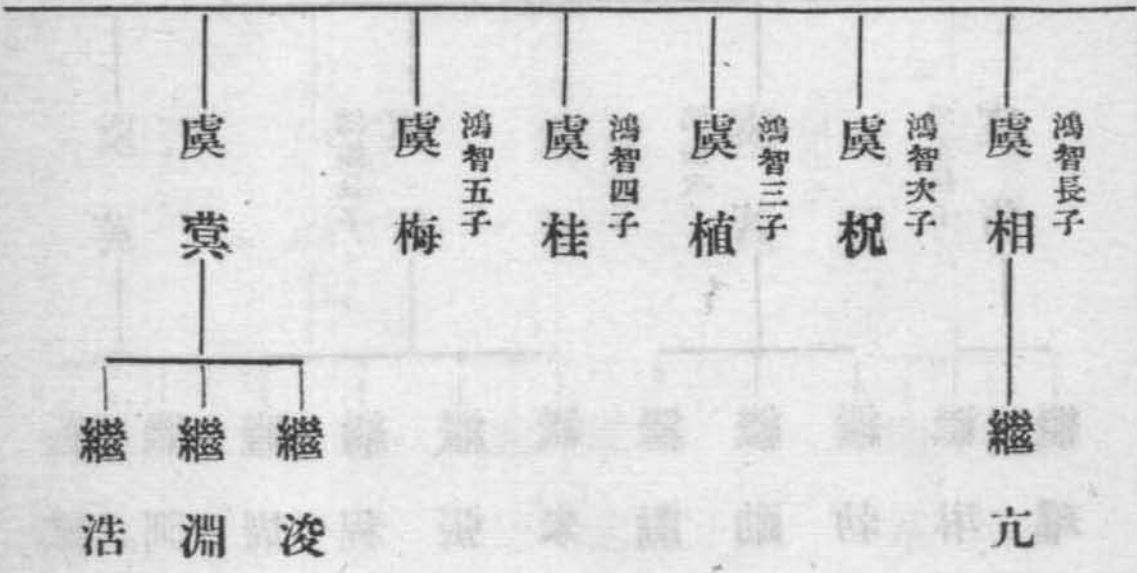 鴻智長子
虞相
鴻智次子
虞柷
鴻智三子
虞植
鴻智四子
虞桂
鴻智五子
虞梅
虞蓂
繼亢
繼浚
繼淵
繼浩